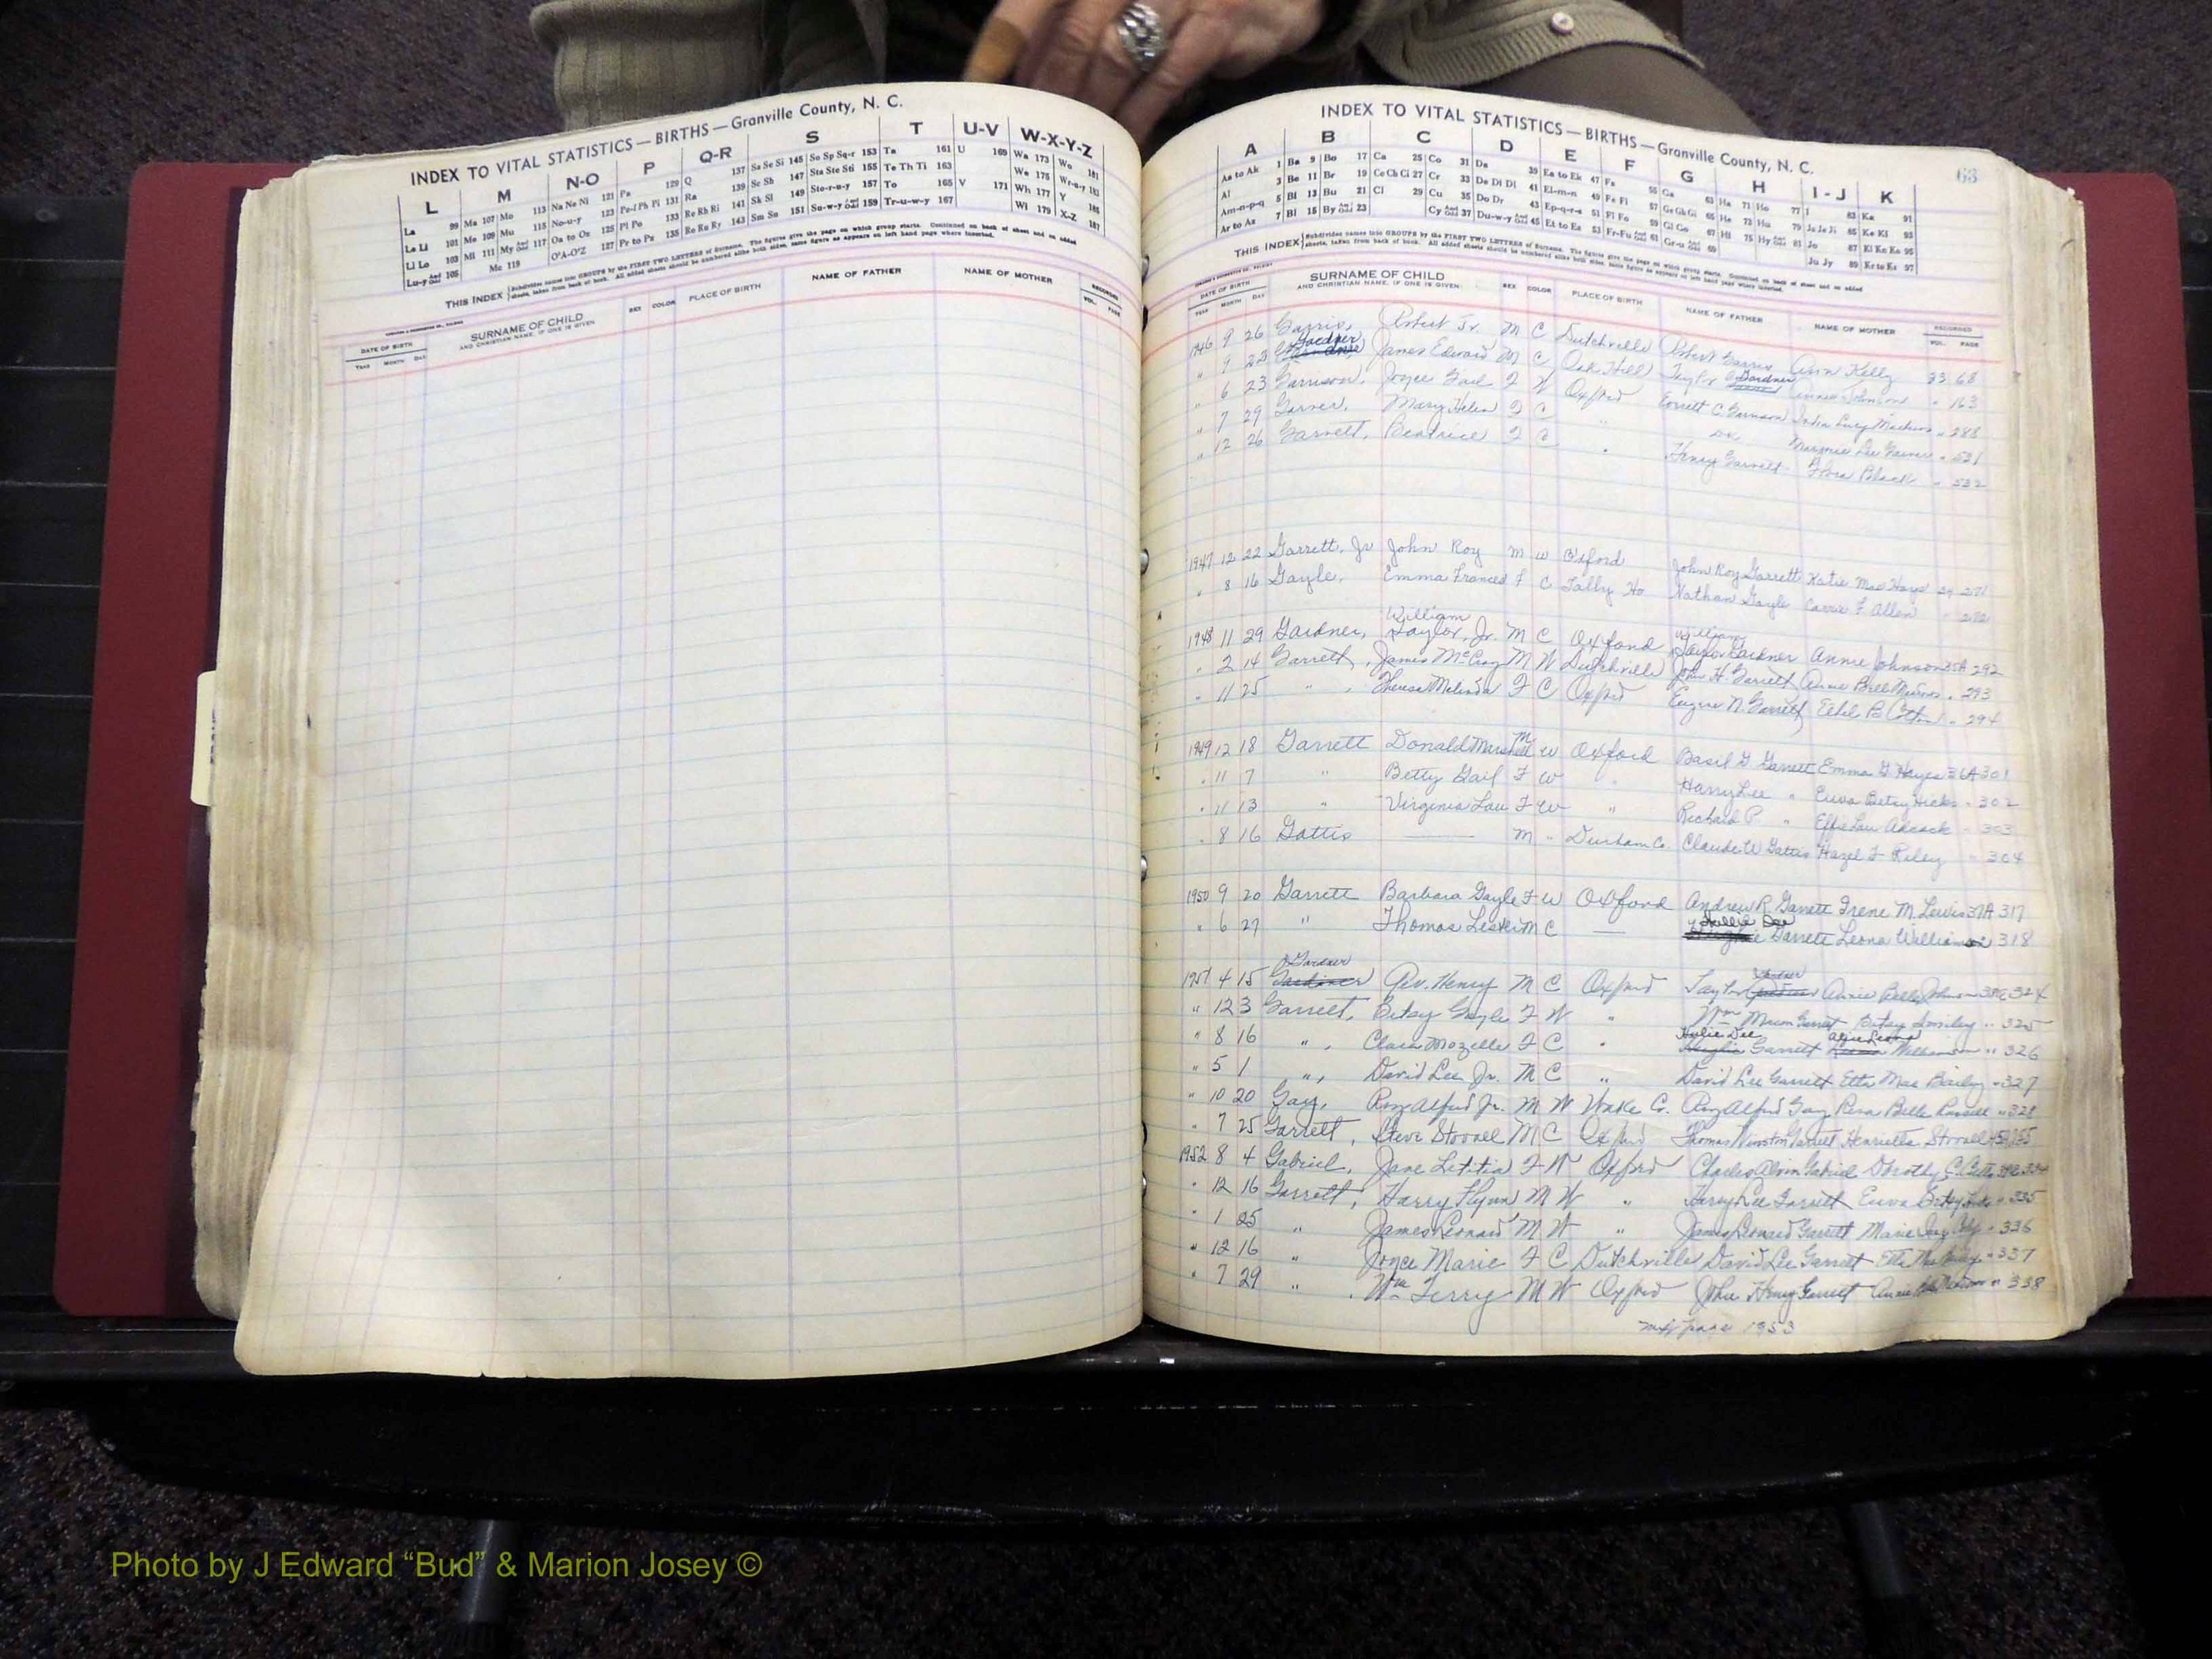 INDEX TO VITAL STATISTICS — BIRTHS — Granville County, N. C.
L M N-O P Q-R S T U-V W-X-Y-Z
La 99 Ma 107 Mo 113 Na Ne Ni 121 Pa 129 Q 137 Sa Se Si 145 So Sp Sq-r 153 Ta 161 U 169 Wa 173 Wo 181
Le Li 101 Me 109 Mu 115 No-u-y 123 Pe-f Ph Pi 131 Ra 139 Sc Sh 147 Sta Ste Sti 155 Te Th Ti 163 We 175 Wr-u-y 183
Ll Lo 103 Mi 111 My And Odd 117 Oa to Os 125 Pl Po 133 Re Rh Ri 141 Sk Sl 149 Sto-r-u-y 157 To 165 V 171 Wh 177 Y 185
Lu-y And Odd 105 Mc 119 O'A-O'Z 127 Pr to Ps 135 Ro Ru Ry 143 Sm Sn 151 Su-w-y And Odd 159 Tr-u-w-y 167 Wi 179 X-Z 187
THIS INDEX Subdivides names into GROUPS by the FIRST TWO LETTERS of Surname. The figures give the page on which group starts. Continued on back of sheet and on added
sheets, taken from back of book. All added sheets should be numbered alike both sides, same figure as appears on left hand page where inserted.
DATE OF BIRTH SURNAME OF CHILD SEX COLOR PLACE OF BIRTH NAME OF FATHER NAME OF MOTHER RECORDED
YEAR MONTH DAY AND CHRISTIAN NAME, IF ONE IS GIVEN VOL. PAGE
INDEX TO VITAL STATISTICS — BIRTHS — Granville County, N. C.
63
A B C D E F G H I-J K
Aa to Ak 1 Ba 9 Bo 17 Ca 25 Co 31 Da 39 Ea to Ek 47 Fa 55 Ga 63 Ha 71 Ho 77 I 83 Ka 91
Al 3 Be 11 Br 19 Ce Ch Ci 27 Cr 33 De Di Dl 41 El-m-n 49 Fe Fi 57 Ge Gh Gi 65 He 73 Hu 79 Ja Je Ji 85 Ke Ki 93
Am-n-p-q 5 Bi 13 Bu 21 Cl 29 Cu 35 Do Dr 43 Ep-q-r-s 51 Fl Fo 59 Gl Go 67 Hi 75 Hy And Odd 81 Jo 87 Kl Kn Ko 95
Ar to Az 7 Bl 15 By And Odd 23 Cy And Odd 37 Du-w-y And Odd 45 Et to Ez 53 Fr-Fu And Odd 61 Gr-u And Odd 69 Ju Jy 89 Kr to Kz 97
THIS INDEX Subdivides names into GROUPS by the FIRST TWO LETTERS of Surname. The figures give the page on which group starts. Continued on back of sheet and on added
sheets, taken from back of book. All added sheets should be numbered alike both sides, same figure as appears on left hand page where inserted.
DATE OF BIRTH SURNAME OF CHILD SEX COLOR PLACE OF BIRTH NAME OF FATHER NAME OF MOTHER RECORDED
YEAR MONTH DAY AND CHRISTIAN NAME, IF ONE IS GIVEN VOL. PAGE
1946 9 26 Garris, Robert Jr. M C Dutchville Robert Garris Ann Kelly 33 68
" 9 22 Gardner James Edward M C Oak Hill Taylor Gardner Annie Johnson " 163
" 6 23 Garrison, Joyce Gail F W Oxford Garrison " 288
" 7 29 Garner, Mary Helen F C " Marjorie Lee Garner " 531
" 12 26 Garrett, Beatrice F C " Henry Garrett Flora Black " 532
1947 12 22 Garrett, Jr John Roy M W Oxford John Roy Garrett Katie Mae Hays 34 271
" 8 16 Gayle, Emma Frances F C Tally Ho Nathan Gayle Carrie F. Allen "
1948 11 29 Gardner, William Taylor, Jr. M C Oxford William Taylor Gardner Annie Johnson 35A 292
" 2 14 Garrett, James McCray M W Dutchville John H. Garrett Annie Bell " 293
" 11 25 " , Theresa Malinda F C Oxford Eugene N. Garrett Ethel B. Cotton " 294
1949 12 18 Garrett Donald Marshall M W Oxford Basil G. Garrett Emma G Hayes 36A 301
" 11 7 " Betty Gail F W " Harry Lee " Euva Betsy Hicks " 302
" 11 13 " Virginia Lou F W " Richard P. " Effie Lou Adcock " 303
" 8 16 Gattis — M " Durham Co. Claude W Gattis Hazel F Riley " 304
1950 9 20 Garrett Barbara Gayle F W Oxford Andrew R. Garrett Irene M. Lewis 37A 317
" 6 27 " Thomas M C — Garrett Leona Williamson 318
1951 4 15 Gardner Rev. Henry M C Oxford Taylor Gardner Annie Belle Johnson 324
" 12 3 Garrett, Betsy Gayle F W " Wm Garrett Betsy Smiley " 325
" 8 16 " , Clara Mozelle F C " Garrett Williamson " 326
" 5 1 " , David Lee Jr. M C " David Lee Garrett Etta Mae Bailey " 327
" 10 20 Gay, Roy Alfred Jr. M W Wake Co. Roy Alfred Gay Belle Russell " 328
" 7 25 Garrett, Steve Stovall M C Oxford Thomas Winston Garrett Henrietta Stovall
1952 8 4 Gabriel, Jane Letitia F W Oxford Charles Alvin Gabriel Dorothy
" 12 16 Garrett, Harry Flynn M W " Harry Lee Garrett Euva Betsy " 335
" 1 25 " James Leonard M W " James Leonard Garrett Marie " 336
" 12 16 " Joyce Marie F C Dutchville David Lee Garrett Etta Mae Bailey " 337
" 7 29 " Wm Terry M W Oxford John Henry Garrett Annie " 338
next page 1953
Photo by J Edward “Bud” & Marion Josey ©